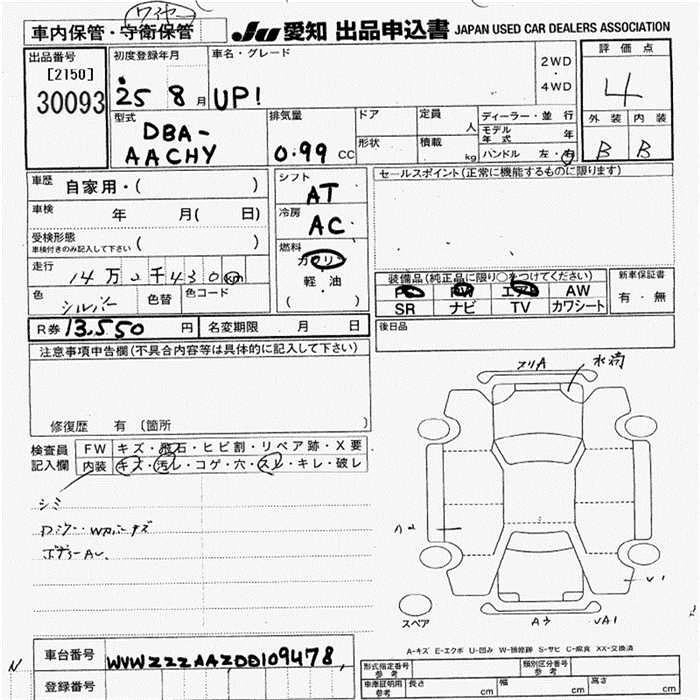 ワイヤー
車内保管・守衛保管
JU 愛知 出品申込書 JAPAN USED CAR DEALERS ASSOCIATION
出品番号
[2150]
30093
初度登録年月
25 8月
車名・グレード
UP!
2WD
・
4WD
評価点
4
外装 内装
B B
型式
DBA-
AACHY
排気量
0.99 CC
ドア
形状
定員
人
積載
kg
ディーラー・並行
モデル年式 年
ハンドル 左・右
車歴 自家用・( )
車検 年 月( 日)
受検形態
車検付きのみ記入して下さい ( )
走行 14万2千430km
色 シルバー 色替 色コード
R券 13,550 円 名変期限 月 日
シフト
AT
冷房
AC
燃料
ガソリン
軽油
( )
セールスポイント(正常に機能するものに限ります)
装備品(純正品に限り○をつけてください)
PS PW エアB AW
SR ナビ TV カワシート
新車保証書
有・無
後日品
注意事項申告欄(不具合内容等は具体的に記入して下さい)
修復歴 有 〔箇所 〕
検査員
記入欄
FW キズ・飛石・ヒビ割・リペア跡・X要
内装 キズ・汚レ・コゲ・穴・スレ・キレ・破レ
シミ
スペア
A-キズ E-エクボ U-凹み W-補修跡 S-サビ C-腐食 XX-交換済
車台番号 WVWZZZAAZDD109478
登録番号
型式指定番号
参考
類別区分番号
参考
車庫証明用
参考
長さ cm 幅 cm 高さ cm